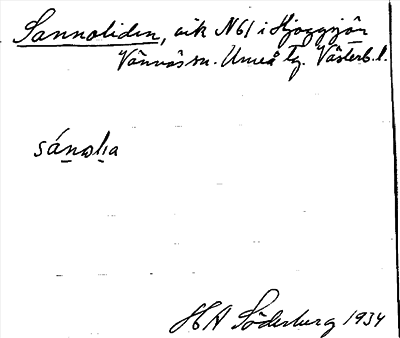 Sannoliden, åik N61 i Hjoggsjön
Vännäs sn. Umeå tg. Västerb. l.
sánəlıa
HA Söderburg 1934